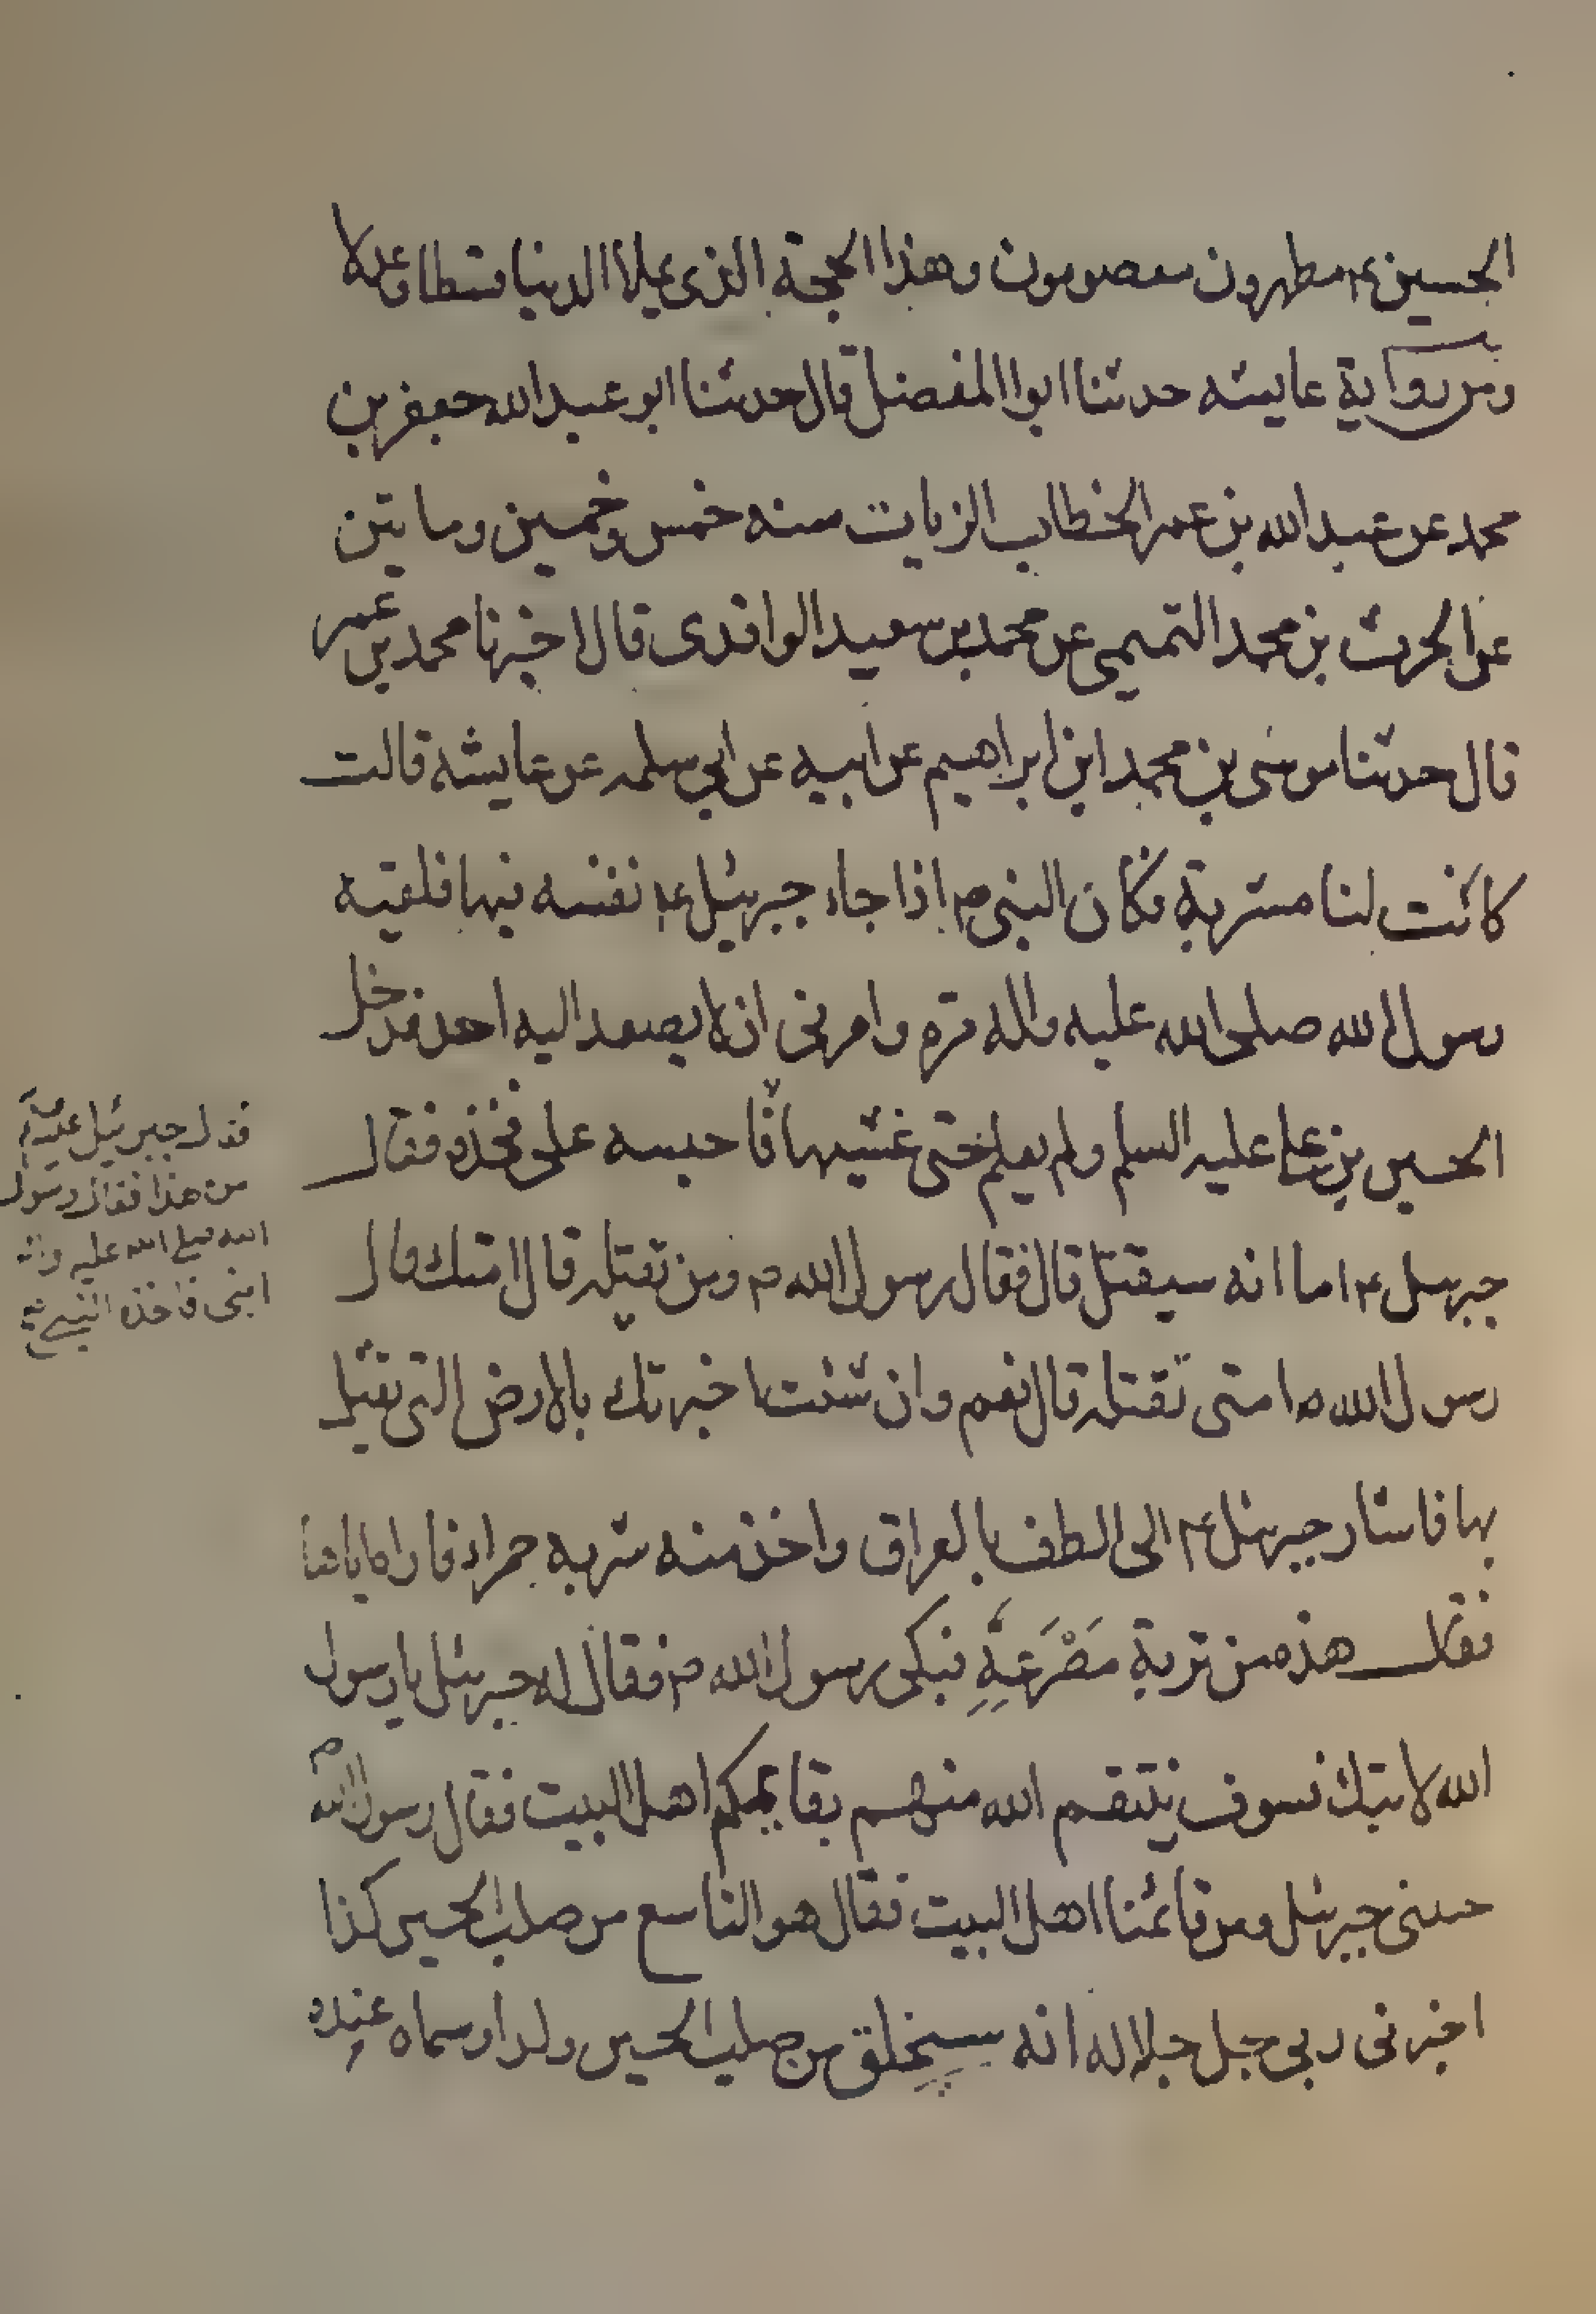 الحسين ع م مطهرون معصومون وهذا الحجة الذى يملاا الدنيا قسطا وعدلا
ومن رواية عايشه حدثنا ابوا المفضل قال حدثنا ابو عبد الله جعفر بن
محمد عن عبد الله بن عمر الخطاب الزيات سنه خمس وخمسين وماتين
عن الحرث بن محمد التميمى عن محمد بن سعيد الواقدى قال اخبرنا محمد بن عمر
قال حدثنا موسى بن محمد ابن ابراهيم عن ابيه عن ابي سلمه عن عايشه قالت
كانت لنا مشربة فكان النبى ص م اذا جاء جبرئيل ع م نفسه فيها فلقيه
رسول الله صلى الله عليه واله مرة وامرنى ان لا يصعد اليه احد فدخل
الحسين بن على عليه السلم ولم يعلم حتى غشيها فا حبسه على فخذه فقال
جبرئيل ع م اما انه سيقتل قال فقال رسول الله ص م ومن تقتله قال امتك قال
رسول الله ص امتى تقتله قال نعم وان شئت اخبرتك بالارض التى يقتل
بها فاشار جبرئيل ع م الى الطف بالعراق واخذ منه تربه حمراء فاراه اياها
فقال هذه من تربة مَصْرَعَهِ فبكى رسول الله ص م فقال له جبرئيل يا رسول
الله لا تبك فسوف ينتقم الله منهم بقايمكم اهل البيت فقال رسول الله ص
حبيبى جبرئيل ومن قائمنا اهل البيت فقال هو التاسع من صلب الحسين كذا
اخبرنى ربى جل جلاله انه سيخلق من صلب الحسين ولدا وسماه عنده
فقال جبرئيل عليه م
من هذا فقال رسول
الله صلى الله عليه واله
ابنى فاخذه النبي ع